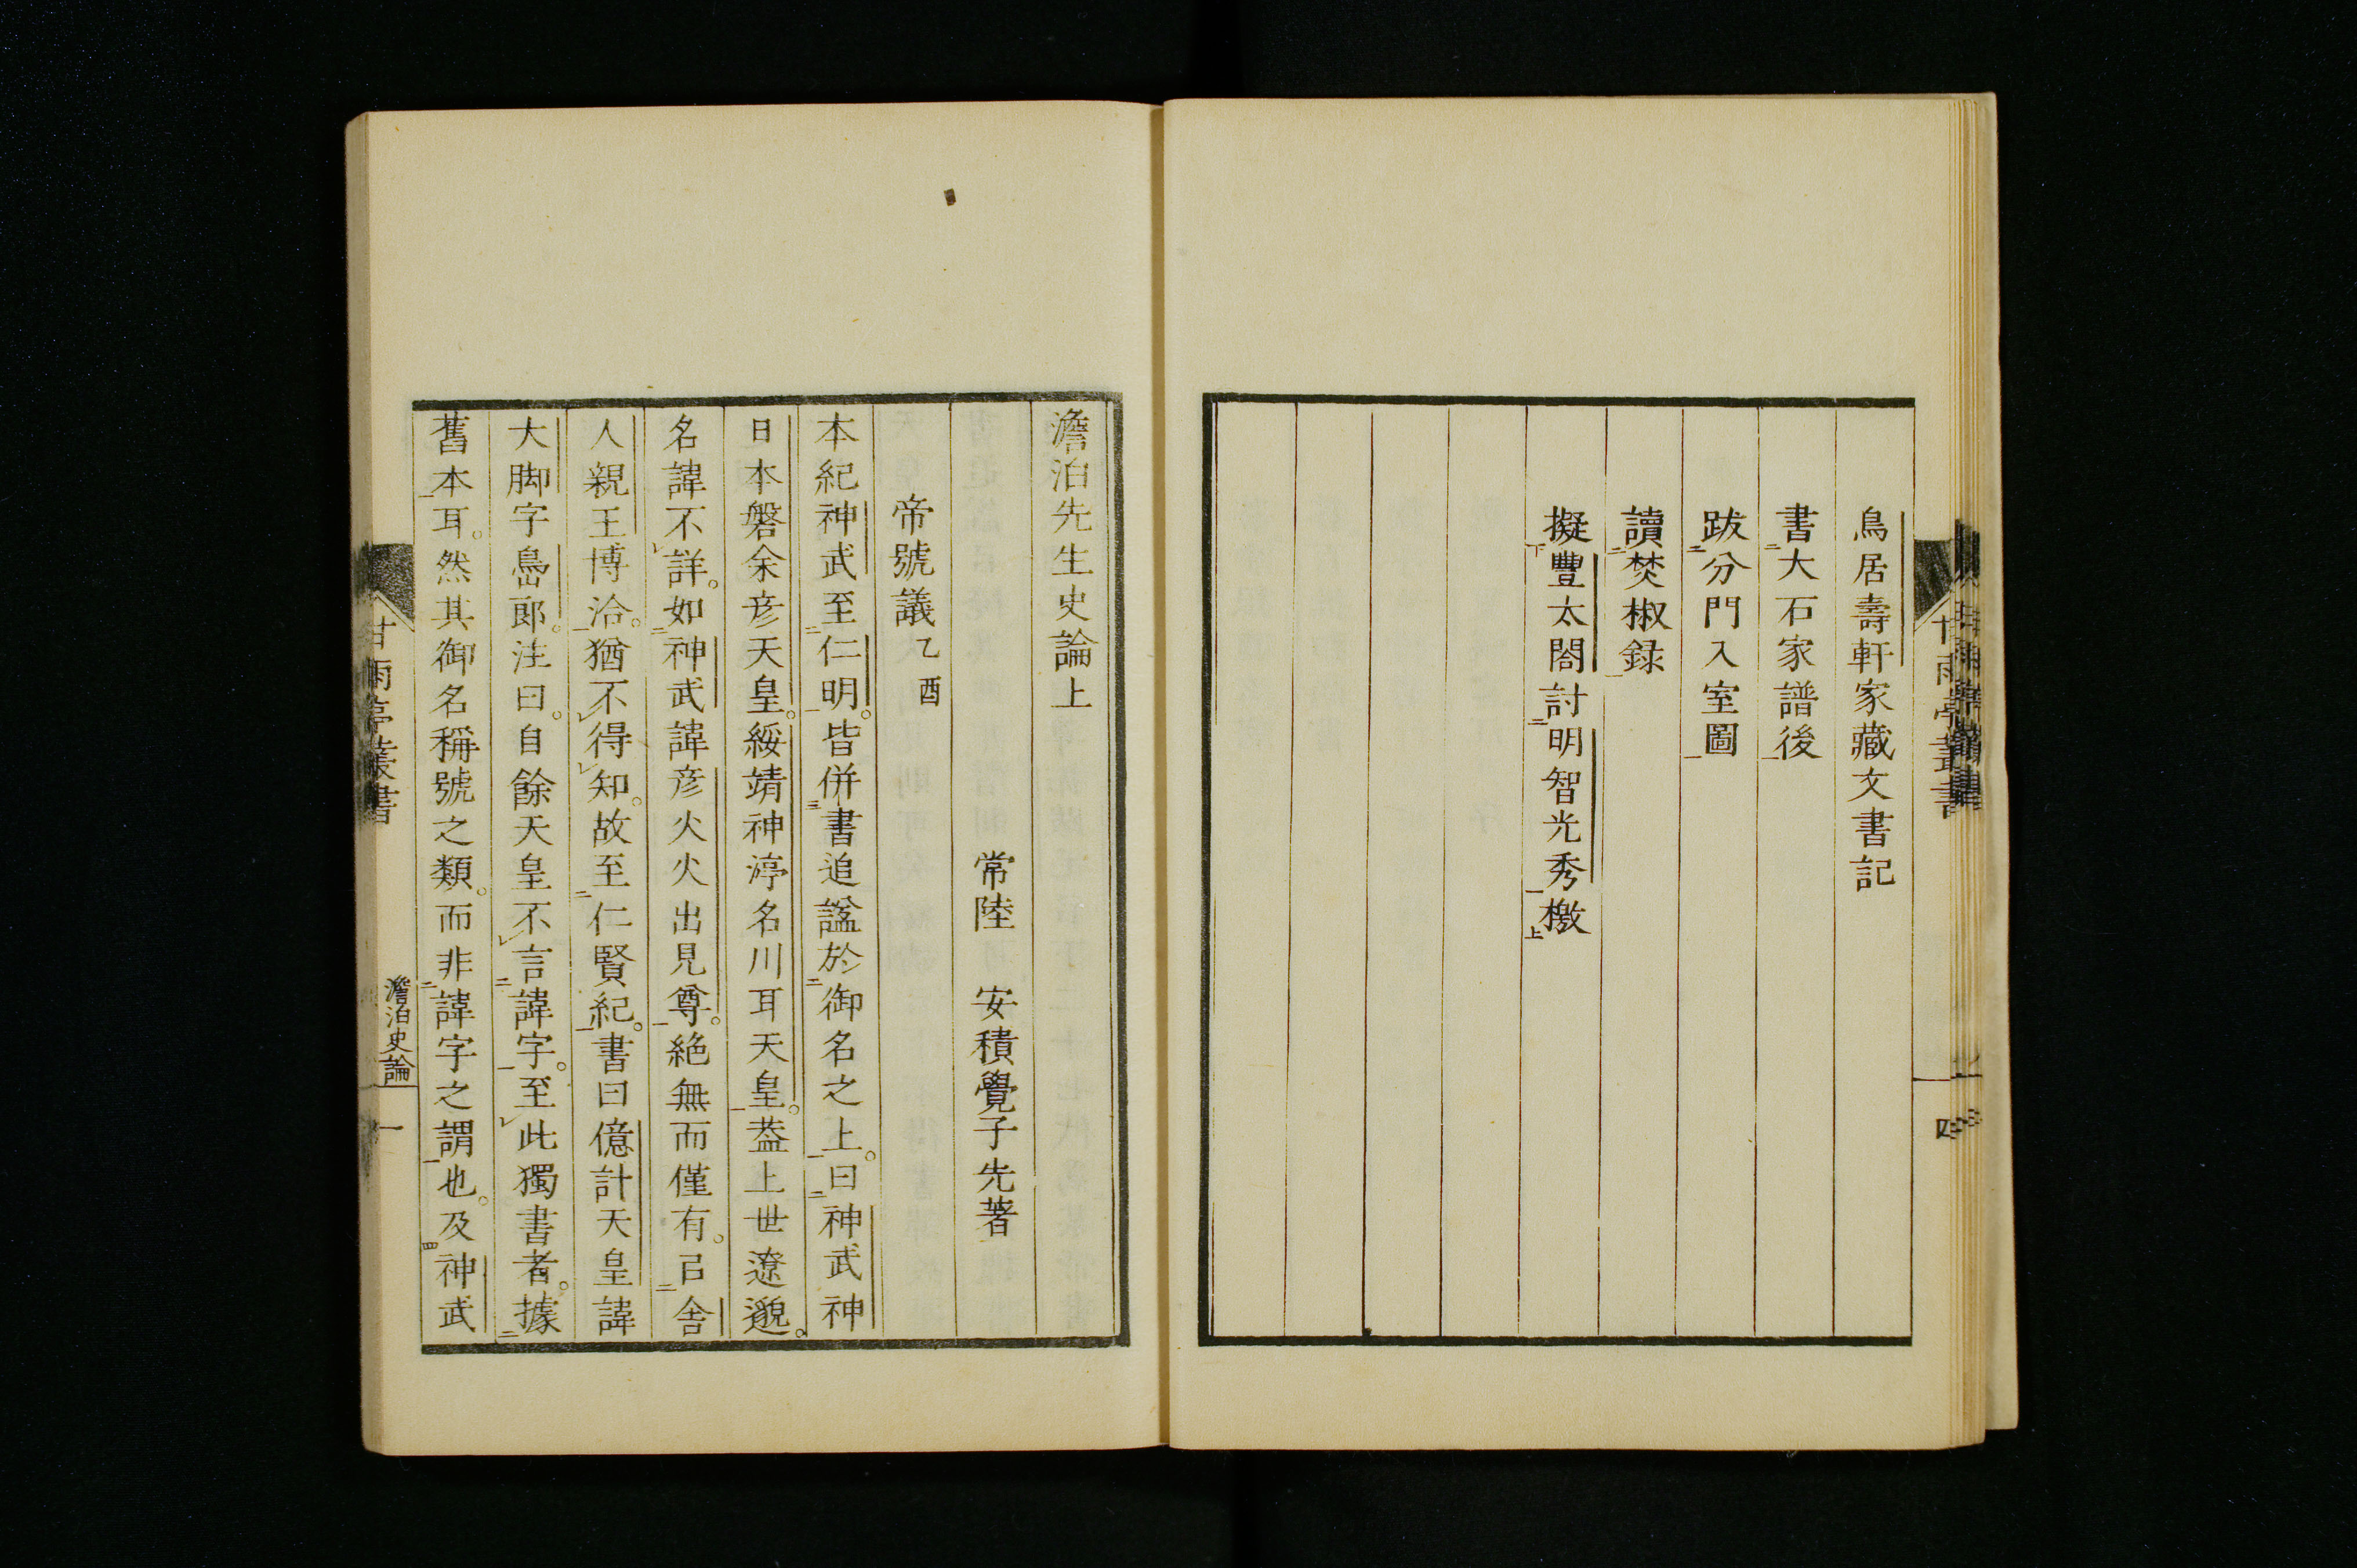 鳥居壽軒家藏文書記
書大石家譜後
跋分門入室圖
讀焚椒録
擬豐太閤討明智光秀檄
四
澹泊先生史論上
常陸 安積覺子先著
帝號議乙酉
本紀神武至仁明。皆併書追諡於御名之上。曰神武神
日本磐余彦天皇。綏靖神渟名川耳天皇。葢上世遼邈。
名諱不詳。如神武諱彦火火出見尊。絶無而僅有。已舍
人親王博洽。猶不得知。故至仁賢紀。書曰億計天皇諱
大脚字嶋郎。注曰。自餘天皇不言諱字。至此獨書者。據
舊本耳。然其御名稱號之類。而非諱字之謂也。及神武
甘雨亭叢書
澹泊史論
一